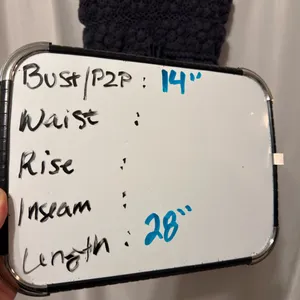 Bust/P2P : 14"
Waist :
Rise :
Inseam :
Length : 28"